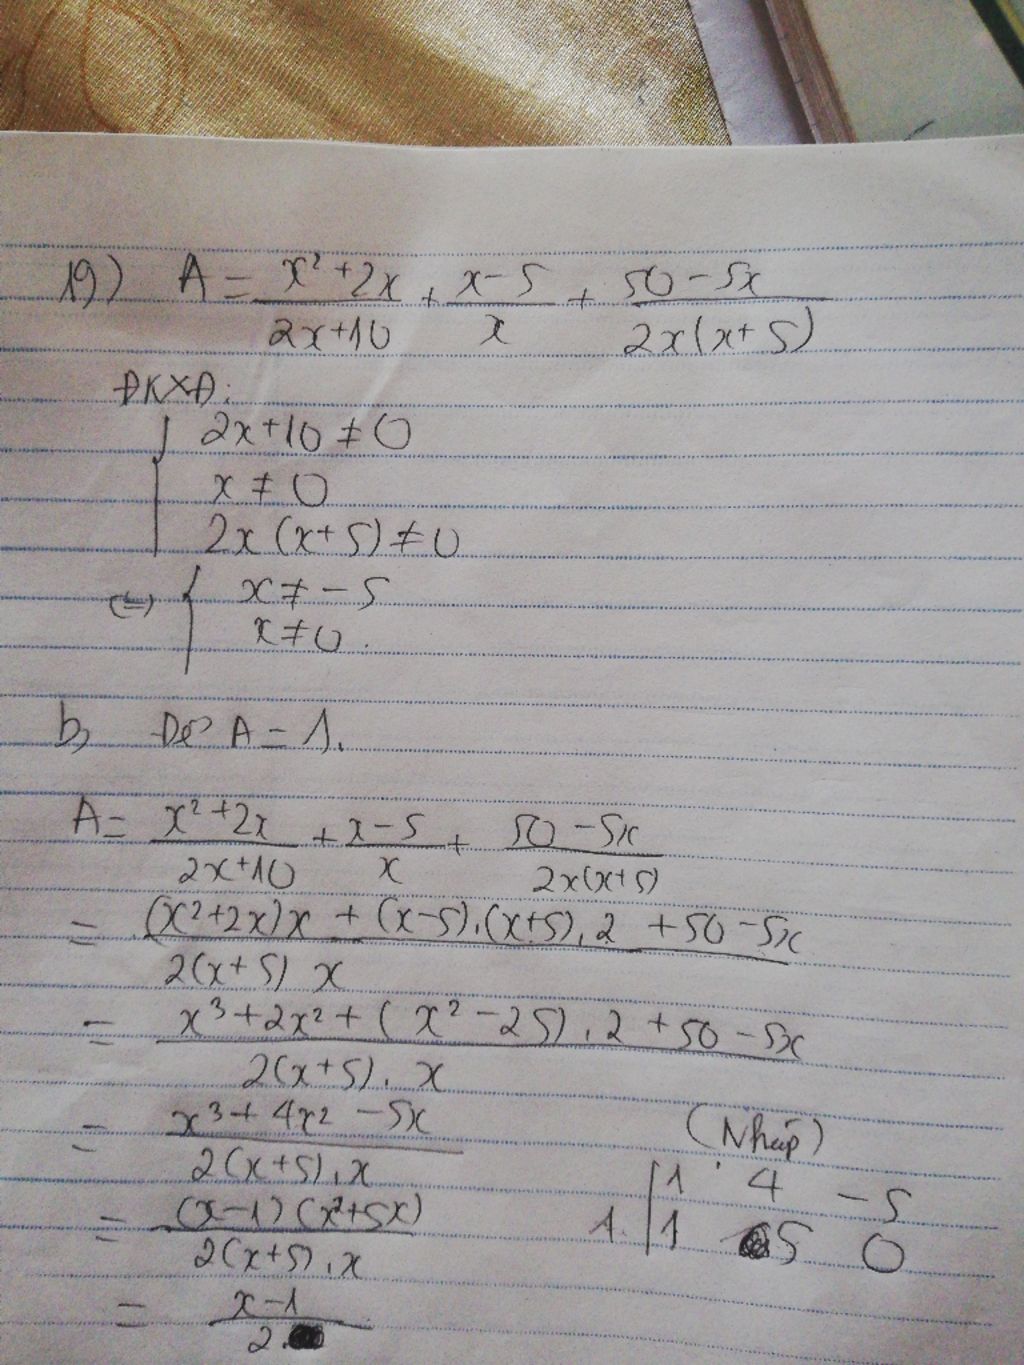 19) A = \frac{x² + 2x}{2x + 10} + \frac{x - 5}{x} + \frac{50 - 5x}{2x(x + 5)}
ĐKXĐ:
{ 2x + 10 ≠ 0
x ≠ 0
2x (x + 5) ≠ 0
(=) { x ≠ - 5
x ≠ 0.
b, Để A = 1.
A = \frac{x² + 2x}{2x + 10} + \frac{x - 5}{x} + \frac{50 - 5x}{2x(x + 5)}
= \frac{(x² + 2x)x + (x - 5).(x + 5).2 + 50 - 5x}{2(x + 5) x}
= \frac{x³ + 2x² + (x² - 25).2 + 50 - 5x}{2(x + 5).x}
= \frac{x³ + 4x² - 5x}{2(x + 5).x}
= \frac{(x - 1)(x² + 5x)}{2(x + 5).x}
= \frac{x - 1}{2}
(Nháp)
1 4 - 5
1. 1 5 0